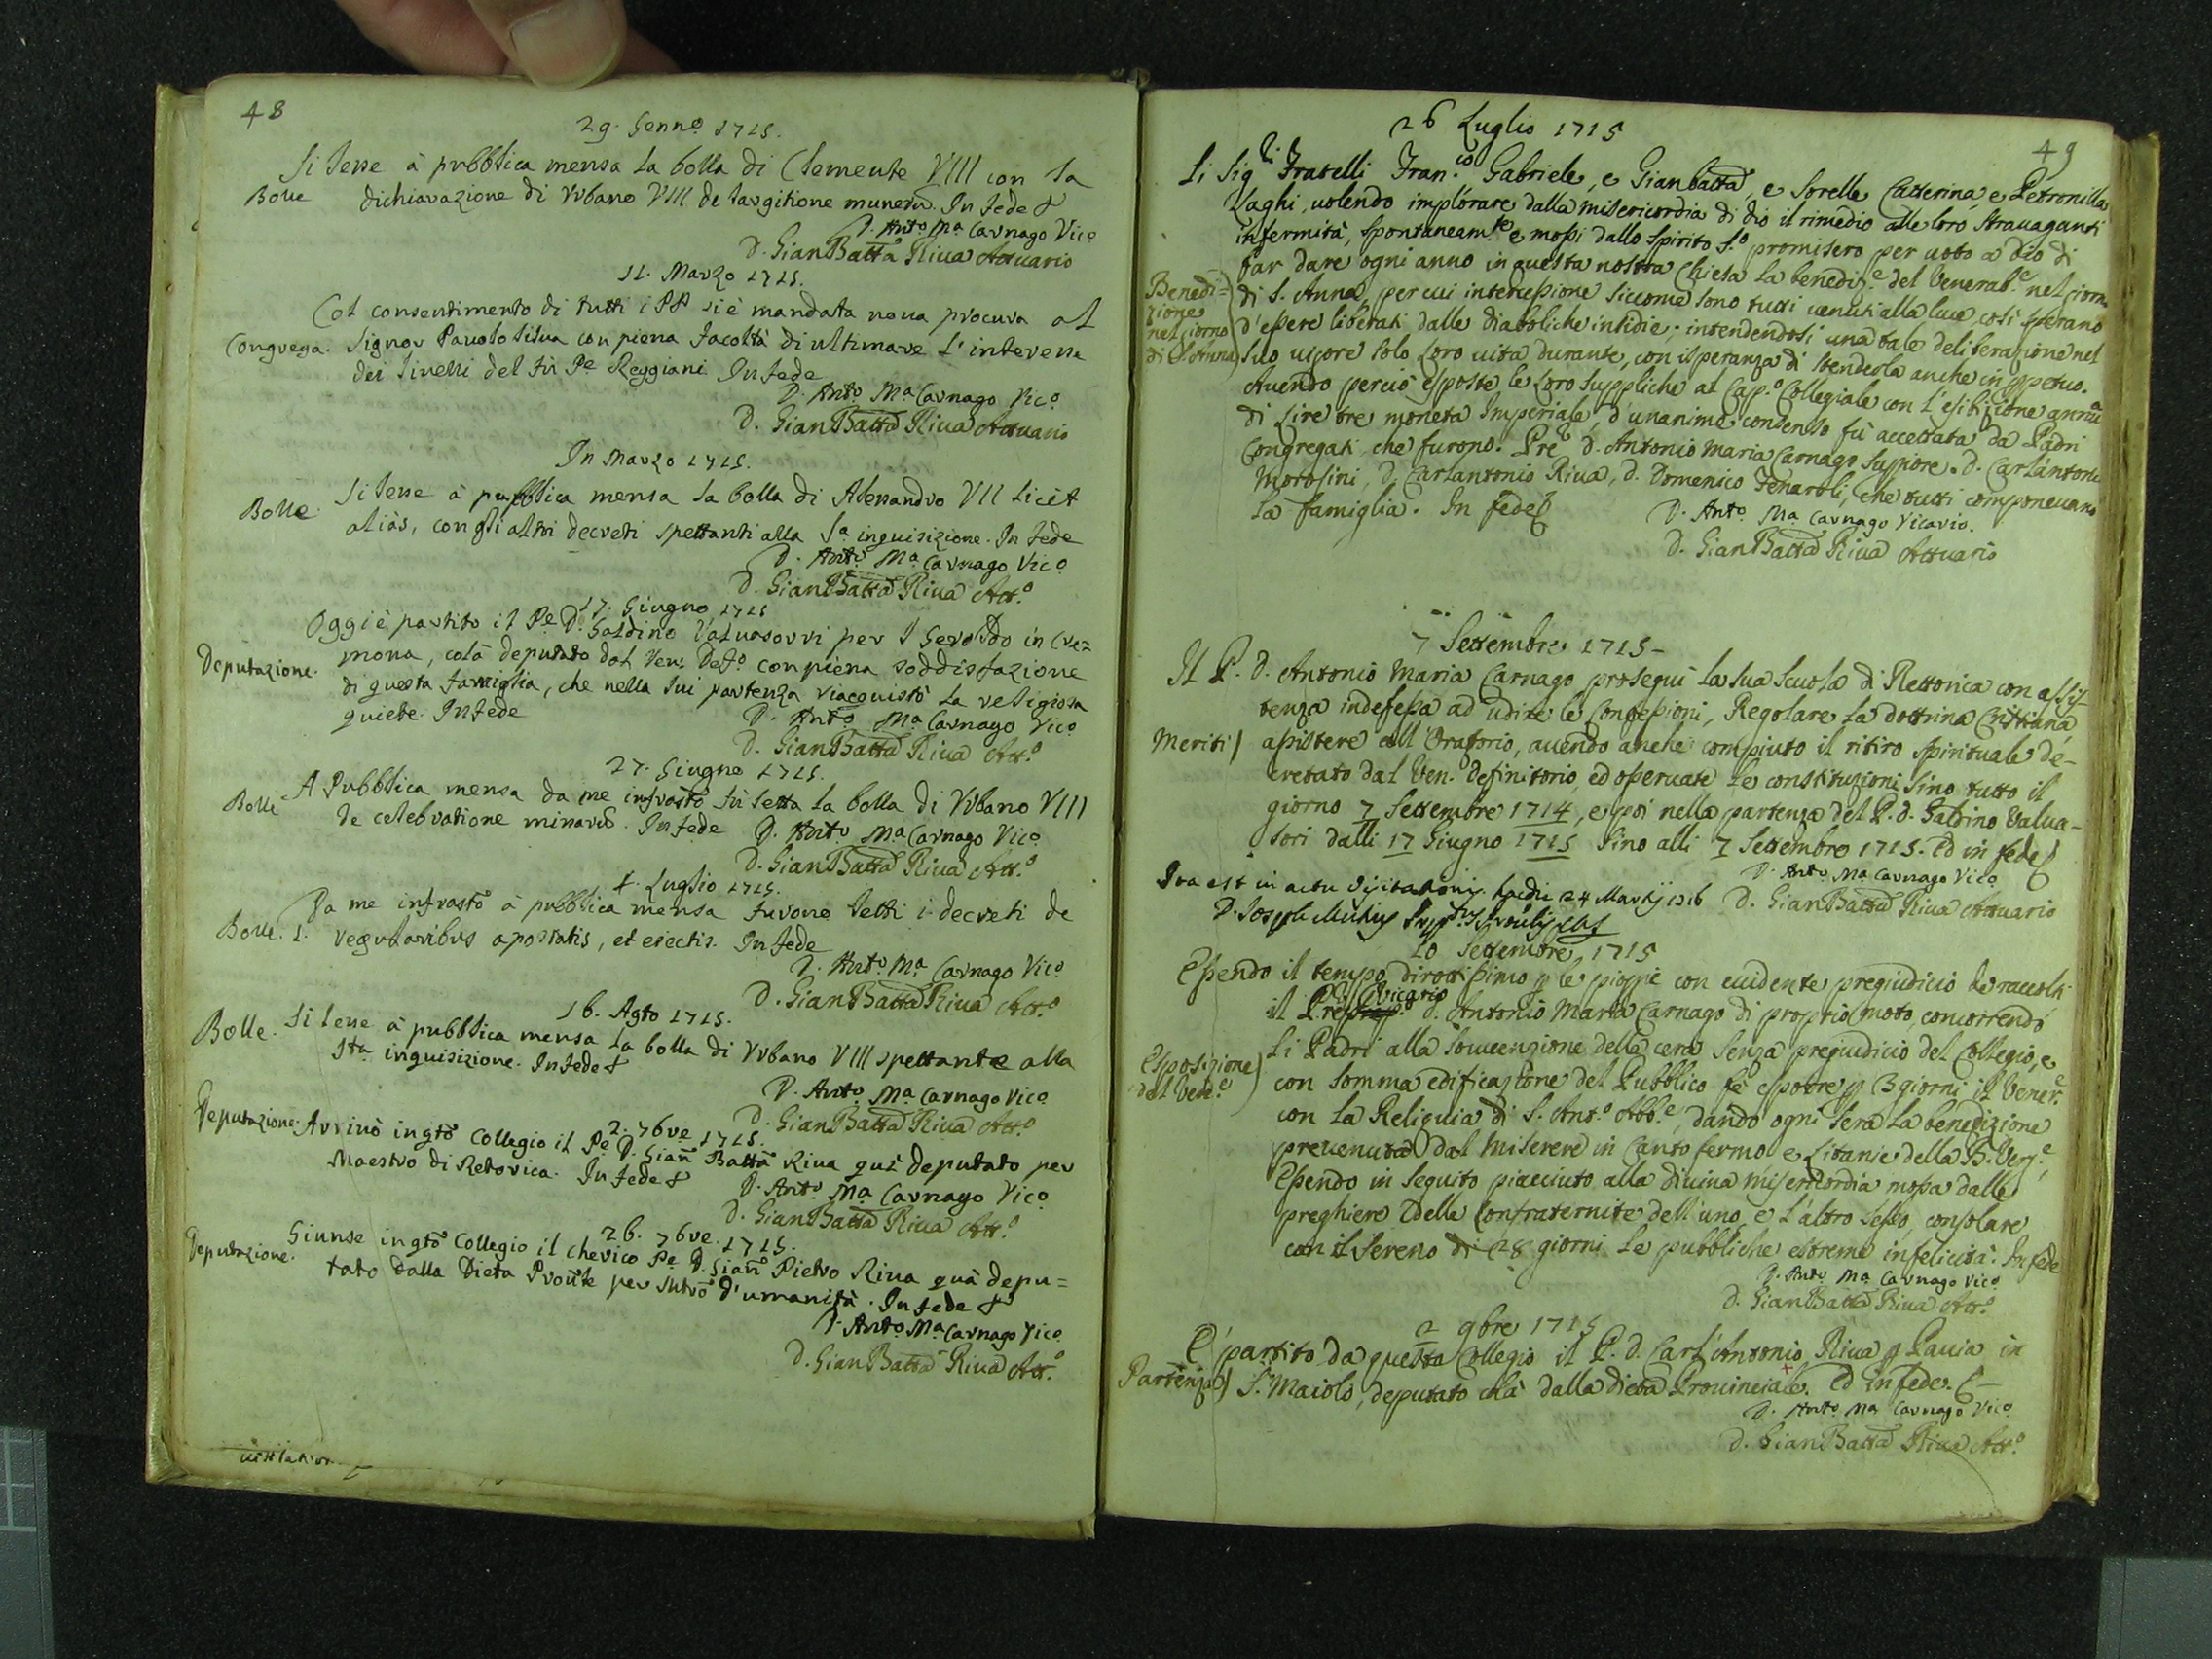 48
29. Genn.o 1715.
Si lesse à pubblica mensa la bolla di Clemente VIII con la
Bolle dichiarazione di Urbano VIII de largitione muneru. In fede &
D. Ant.o M.a Carnago Vic.o
D. Gian Batta Riva Attuario
11. Marzo 1715.
Col consentimento di tutti i PP si è mandata nova procura al
Congrega. Signor Pauolo Silva con piena facoltà di ultimare l'interesse
dei Sinelli del fù P.e Reggiani. In fede
D. Ant.o M.a Carnago Vic.o
D. Gian Batta Riva Attuario
In Marzo 1715.
Si lesse à pubblica mensa la bolla di Alessandro VII licèt
Bolle. aliàs, con gli altri decreti spettanti alla S.a inquisizione. In fede
D. Ant.o M.a Carnago Vic.o
D. Gian Batta Riva Att.o
17. Giugno 1715
Oggi è partito il P.e D. Galdino Valvasorri per S Geroldo in Cre=
Deputazione. mona, colà deputato dal Ven: Def.o con piena soddisfazione
di questa famiglia, che nella sui partenza riacquistò la religiosa
quiete. In fede
D. Ant.o M.a Carnago Vic.o
D. Gian Batta Riva Att.o
27. Giugno 1715.
Bolle A Pubblica mensa da me infrastto fù letta la bolla di Urbano VIII
de celebratione missarũ. In fede D. Ant.o M.a Carnago Vic.o
D. Gian Batta Riva Att.o
4. Luglio 1715.
Da me infrastto à pubblica mensa furono letti i decreti de
Bolle. 1. regularibus apostatis, et eiectis. In fede
D. Ant.o M.a Carnago Vic.o
D. Gian Batta Riva Att.o
16. Agto 1715.
Bolle. Si lesse à pubblica mensa la bolla di Urbano VIII spettante alla
S.ta inquisizione. In fede &
D. Ant.o M.a Carnago Vic.o
D. Gian Batta Riva Att.o
2. 76re 1715.
Deputazione. Arrivò in qto Collegio il P.e D. Gian Batta Riva quà deputato per
Maestro di Retorica. In fede &
D. Ant.o M.a Carnago Vic.o
D. Gian Batta Riva Att.o
26. 76re. 1715.
Deputazione. Giunse in qto Collegio il cherico P.e D. Gian Pietro Riva quà depu=
tato dalla Dieta Provle per d'umanità. In fede &
D. Ant.o M.a Carnago Vic.o
D. Gian Batta Riva Att.o
49
26 Luglio 1715
Li Sig.ri Fratelli Fran.co Gabriele, e Gianbatta, e Sorelle Catterina, e Petronilla
Vaghi, volendo implorare dalla misericordia di Dio il rimedio alle loro stravaganti
infermità, spontaneam.te e mossi dallo Spirito S.o promisero per voto a Dio di
far dare ogni anno in questa nostra Chiesa la benediz.e del Venerab.e nel giorno
Benedi=
zione
nel giorno
di S. Anna
di S. Anna, per cui intercessione siccome sono tutti venuti alla luce così sperano
d'essere liberati dalle diaboliche insidie; intendendosi una tale deliberazione nel
suo vigore solo loro vita durante, con isperanza di stenderla anche in ppetuo.
Avendo perciò esposte le loro suppliche al Cap.o Collegiale con l'esibizione annua
di Lire tre moneta Imperiale, d'unanime consenso fù accettata da Padri
Congregati, che furono. Pre D. Antonio Maria Carnago Suppiore. D. Carlantonio
Morosini, D. Carlantonio Riva, D. Domenico Fenaroli, che tutti componevano
la famiglia. In fede
D. Ant.o M.a Carnago Vicario.
D. Gian Batta Riva Attuario
7 Settembre 1715-
Il P. D. Antonio Maria Carnago proseguì la sua Scuola di Rettorica con assis-
tenza indefessa ad udire le Confessioni, Regolare la dottrina Cristiana,
Meriti assistere all'Oratorio, avendo anche compiuto il ritiro spirituale de-
cretato dal Ven. Definitorio, ed osservate le constituzioni sino tutto il
giorno 7 Settembre 1714, e poi nella partenza del P. D. Galdino Valva-
sori dalli 17 Giugno 1715 sino alli 7 Settembre 1715. Ed in fede
D. Ant.o M.a Carnago Vic.o
Ita est in actu visitationis hac die 24 Martij 1716 D. Gian Batta Riva Attuario
D. Joseph
10 Settembre 1715
Essendo il tempo dirottissimo p le pioggie con evidente pregiudicio de raccolti
il Pre Vicario D. Antonio Maria Carnago di proprio moto, concorrendo
Esposizione
del Ven.e
li Padri alla sovvenzione della cera senza pregiudicio del Collegio, e
con somma edificazione del Pubblico fè esporre p 3 giorni il Vener.e
con la Reliquia di S. Ant.o Abb.e, dando ogni sera la benedizione
prevenuta dal Miserere in Canto fermo e Litanie della B. Verg.e,
Essendo in seguito piacciuto alla divina misericordia mossa dalle
preghiere delle Confraternite dell'uno, e l'altro sesso, consolare
con il sereno di 28 giorni le pubbliche estreme infelicità. In fede
D. Ant.o M.a Carnago Vic.o
D. Gian Batta Riva Att.o
2 9bre 1715
E' partito da questa Collegio il P. D. Carl'Antonio Riva p Pavia in
Partenza S. Maiolo, deputato colà dalla dieta Provinciale. Ed in fede. &
D. Ant.o M.a Carnago Vic.o
D. Gian Batta Riva Att.o